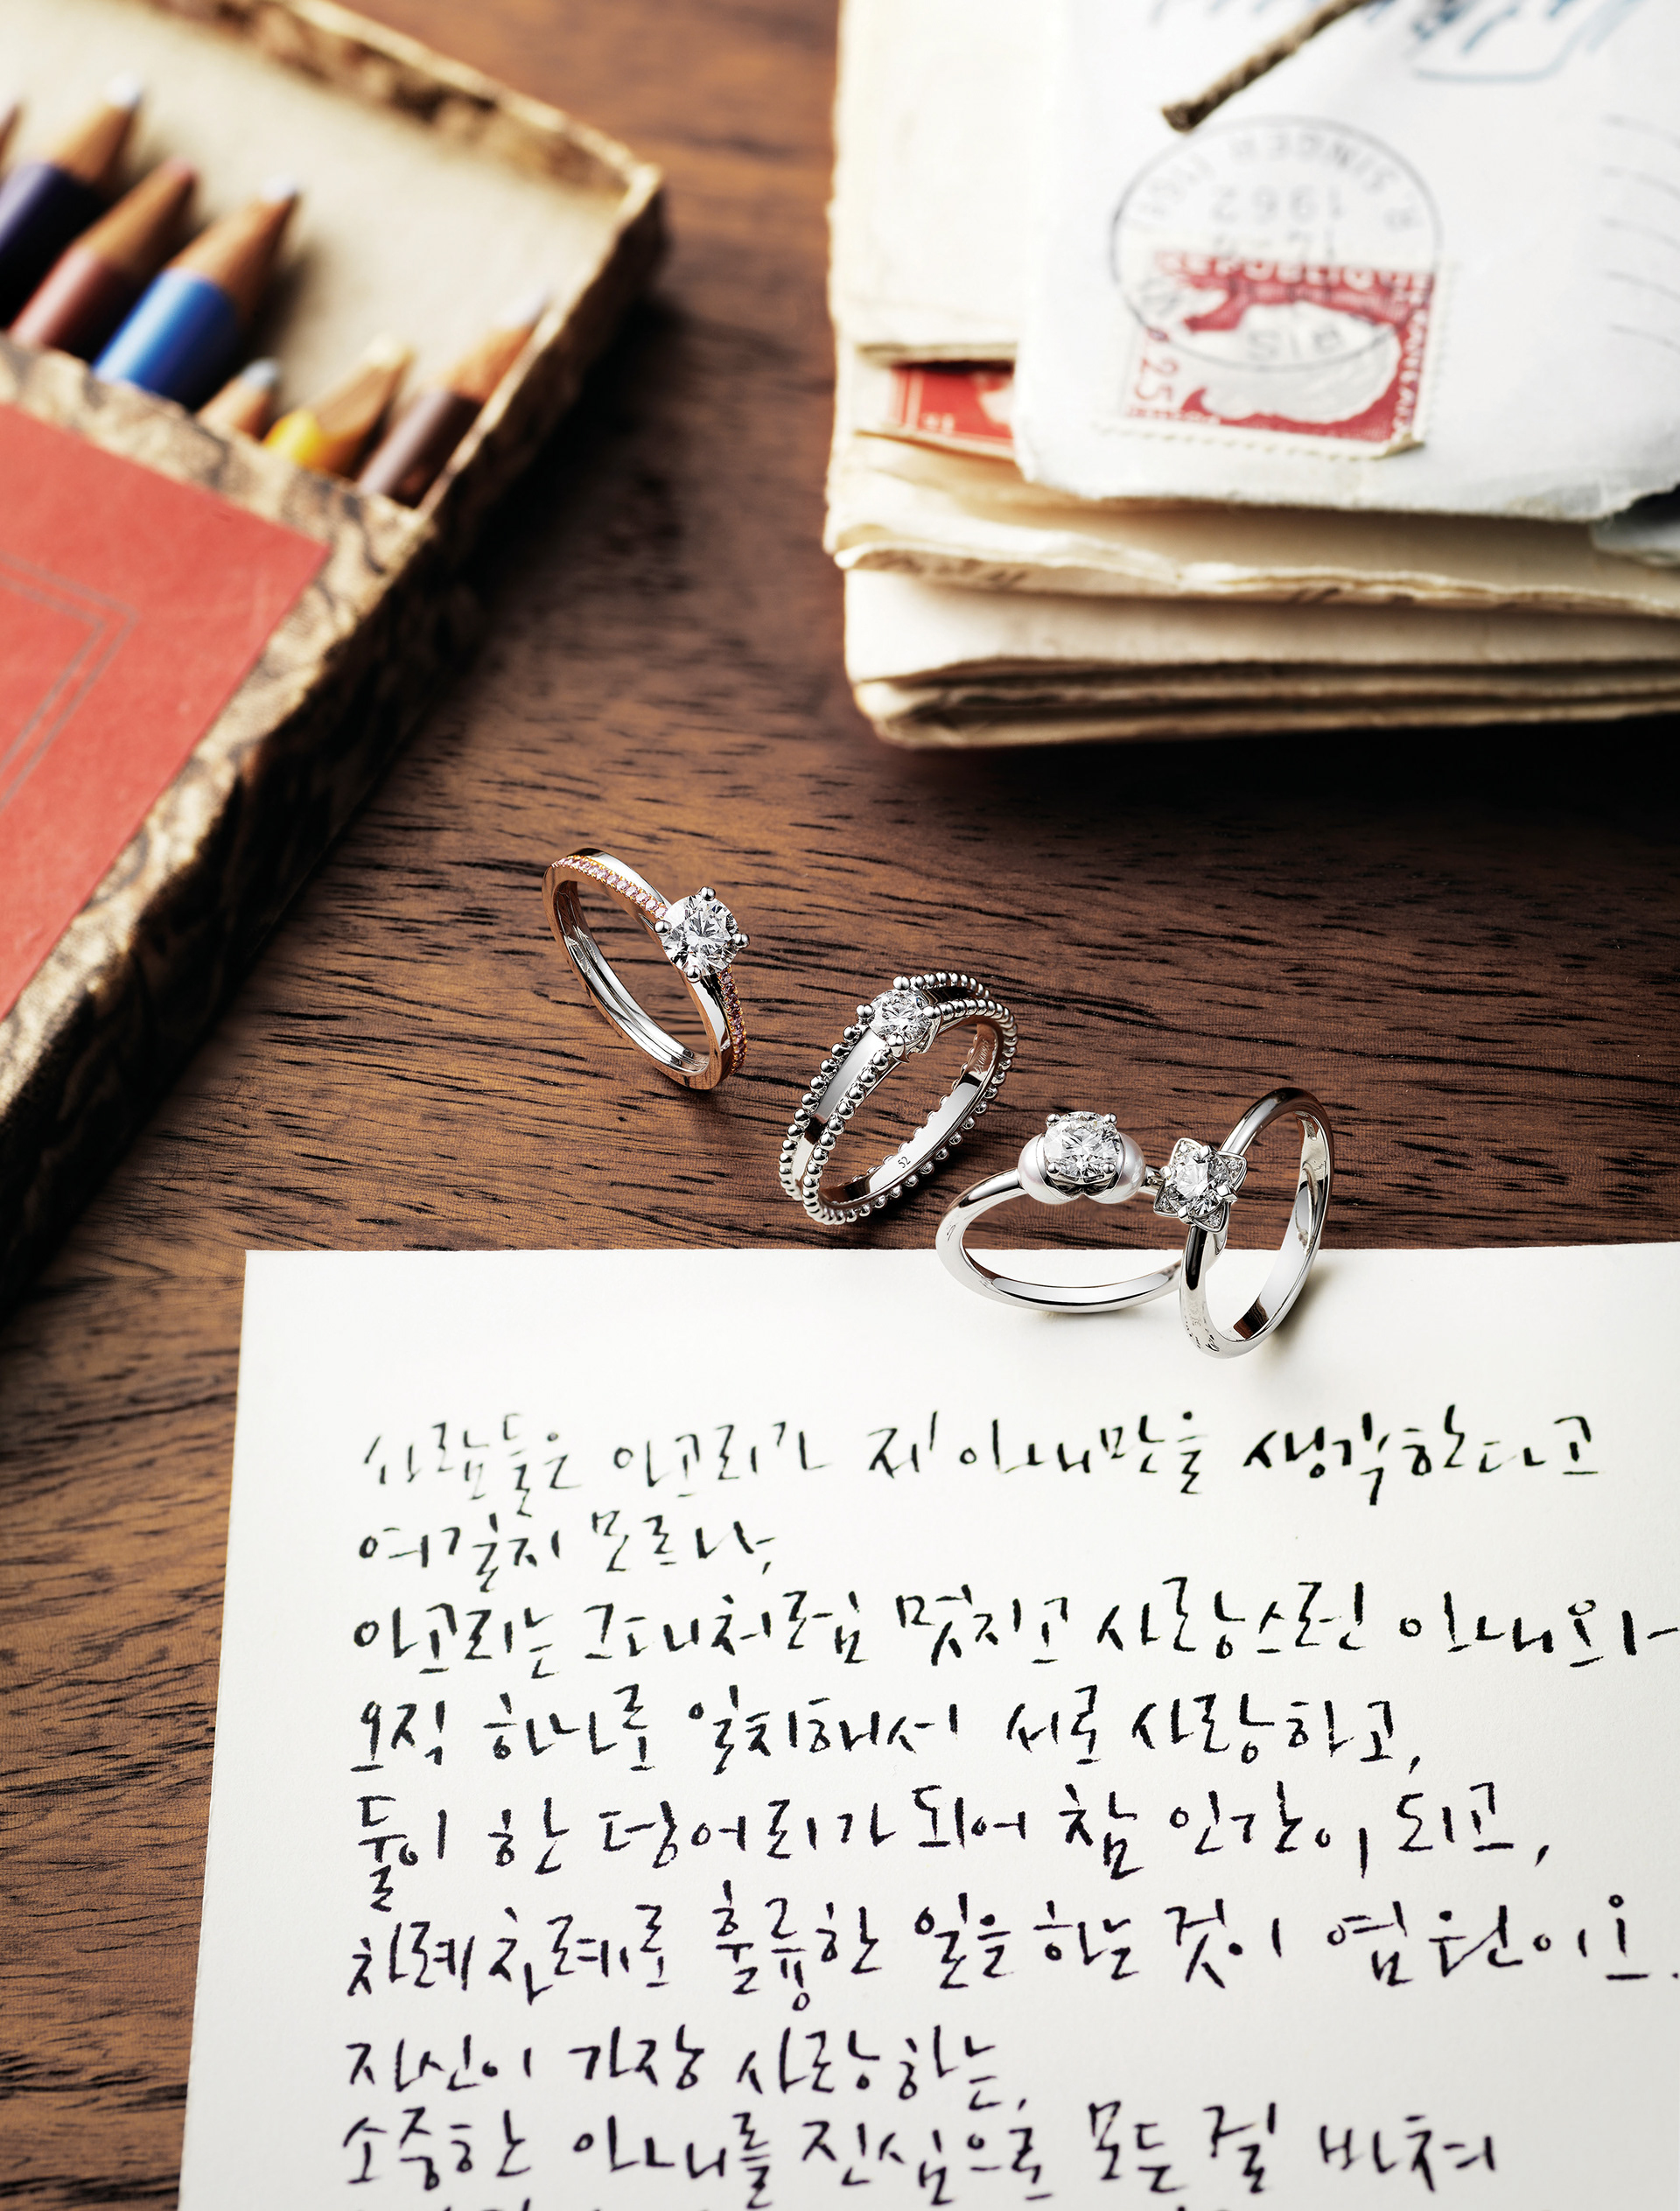 R. SINGER
1962
REPUBLIQUE FRANÇAISE
0,25
52
사람들은 아고리가 제 아내만을 생각한다고
여길지 모르나,
아고리는 그대처럼 멋지고 사랑스런 아내와
오직 하나로 일치해서 서로 사랑하고,
둘이 한 덩어리가 되어 참 인간이 되고,
차례차례로 훌륭한 일을 하는 것이 염원이오.
자신이 가장 사랑하는,
소중한 아내를 진심으로 모든 걸 바쳐